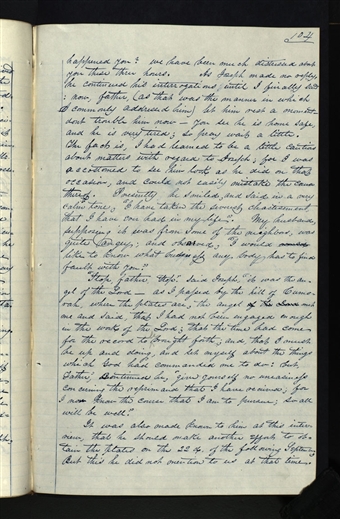 104
happened you? we have been much distressed about
you these three hours. As Joseph made no reply,
he continued his interrogations, until I finally said:
now, father, (as that was the manner in which
I commonly addressed him) let him rest a moment
dont trouble him now — you see he is home safe,
and he is very tired; so pray wait a little.
The fact is, I had learned to be a little cautious
about matters with regard to Joseph; for I was
accustomed to see him look as he did on that
occasion, and could not easily mistake the cause
thereof. Presently he smiled, and said in a very
calm tone, "I have taken the severest chastisement
that I have ever had in my life". My husband,
supposing it was from some of the neighbors, was
quite angry; and observed, "I would
like to know what business any body has to find
fault with you."
"Stop, father, Stop." said Joseph, "it was the an-
gel of the Lord — as I passed by the hill of Cumo-
rah, where the plates are, the angel met
me and said, that I had not been engaged enough
in the work of the Lord; that the time had come
for the record to brought forth; and, that I must
be up and doing, and set myself about the things
which God had commanded me to do: but,
Father, continued he, give yourself no uneasiness
concerning the reprimand that I have received; for
I now know the course that I am to pursue; so all
will be well."
It was also made known to him at this inter-
view, that he should make another effort to ob-
tain the plates on the 22d. of the following September
But this he did not mention to us at that time.